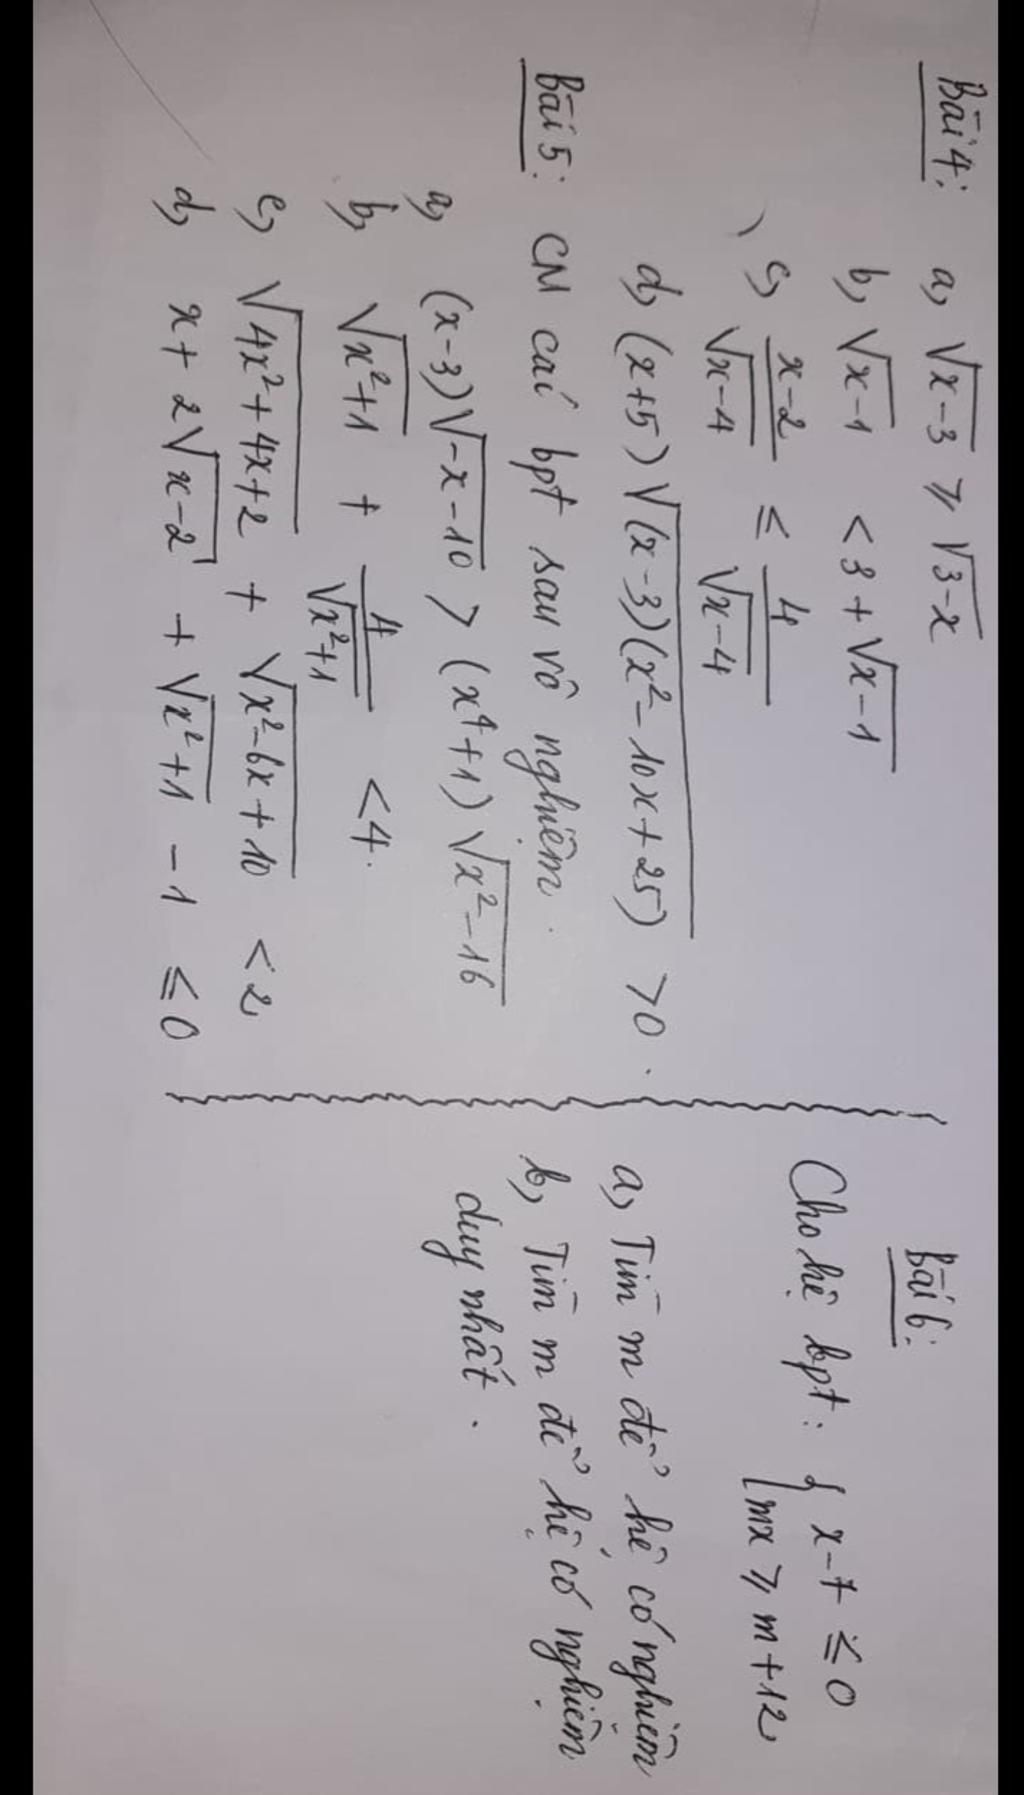 Bài 4: a, √(x-3) ≥ √(3-x)
b, √(x-1) < 3 + √(x-1)
c, (x-2)/√(x-4) ≤ 4/√(x-4)
d, (x+5)√((x-3)(x²-10x+25)) > 0.
Bài 5: CM các bpt sau vô nghiệm.
a, (x-3)√(-x-10) > (x⁴+1)√(x²-16)
b, √(x²+1) + 4/√(x²+1) < 4.
c, √(4x²+4x+2) + √(x²-6x+10) < 2
d, x + 2√(x-2) + √(x²+1) - 1 ≤ 0
Bài 6:
Cho hệ bpt: { x-7 ≤ 0
mx ≥ m+12
a, Tìm m để hệ có nghiệm
b, Tìm m để hệ có nghiệm
duy nhất.